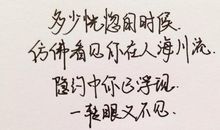 多少恍惚的时候
仿佛看见你在人海川流
隐约中你已浮现
一转眼又不见